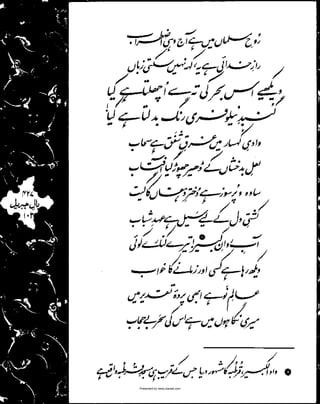 روحِ مسلماں میں ہے آج وہی اضطراب
رازِ خدائی ہے یہ، کہہ نہیں سکتی زباں
دیکھیے اس بحر کی تہ سے اچھلتا ہے کیا
گنبدِ نیلوفری رنگ بدلتا ہے کیا
وادیِ کہسار میں غرقِ شفق ہے سحاب
لعلِ بدخشاں کے ڈھیر چھوڑ گیا آفتاب
سادہ و پرسوز ہے دخترِ دہقاں کا گیت
کشتیِ دل کے لیے سیل ہے عہدِ شباب
آبِ روانِ کبیر تیرے کنارے کوئی
دیکھ رہا ہے کسی اور زمانے کا خواب
عالمِ نو ہے ابھی پردۂ تقدیر میں
میری نگاہوں میں ہے اس کی سحر بے حجاب
وادالکبیر، قرطبہ کا مشہور دریا جس کے قریب ہی مسجدِ قرطبہ واقع ہے
۴۲۷
بالِ جبریل
۱۰۳
Presented by www.ziaraat.com